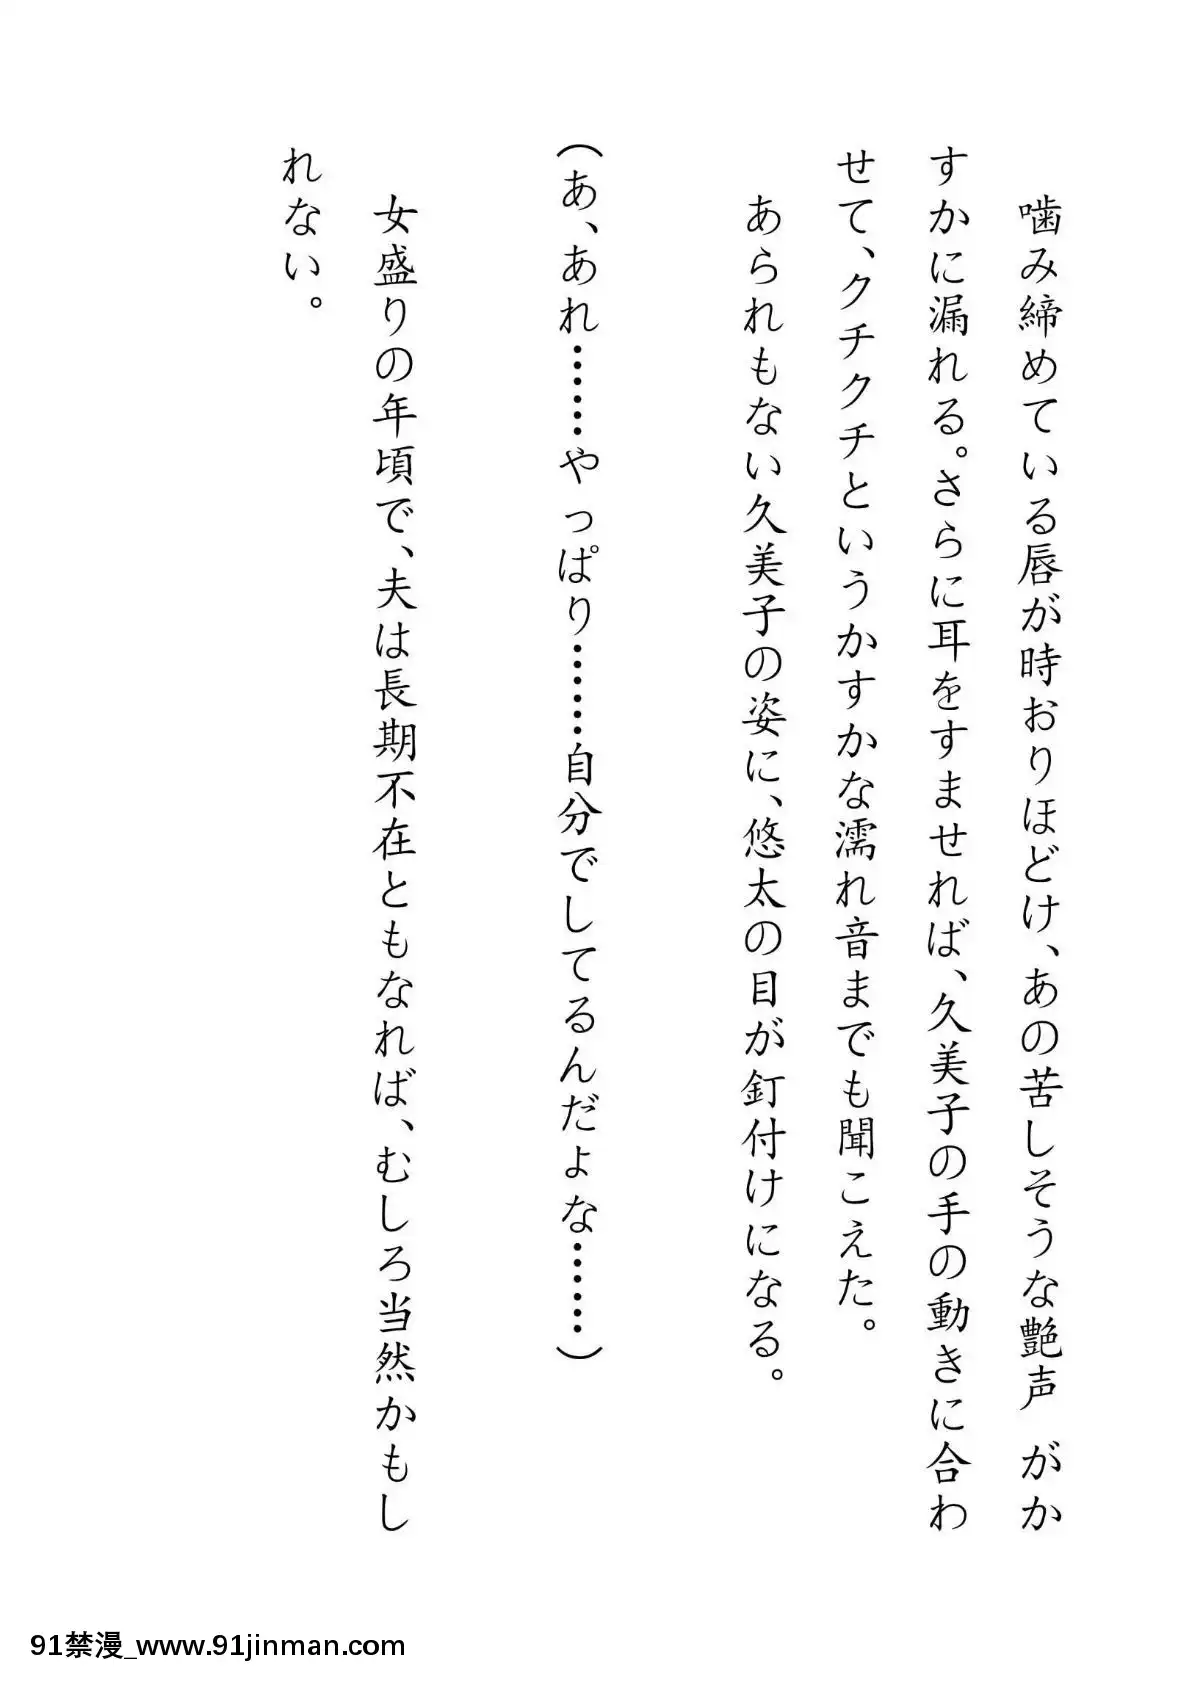 噛み締めている唇が時おりほどけ、あの苦しそうな艶声がか
すかに漏れる。さらに耳をすませれば、久美子の手の動きに合わ
せて、クチクチというかすかな濡れ音までも聞こえた。
あられもない久美子の姿に、悠太の目が釘付けになる。
（あ、あれ……やっぱり……自分でしてるんだよな……）
女盛りの年頃で、夫は長期不在ともなれば、むしろ当然かもし
れない。
91禁漫_www.91jinman.com